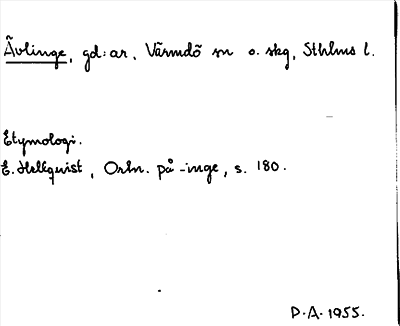 Ävlinge, gd:ar, Värmdö sn o. skg, Sthlms l.
Etymologi.
E. Hellquist, Ortn. på -inge, s. 180.
P.A. 1955.